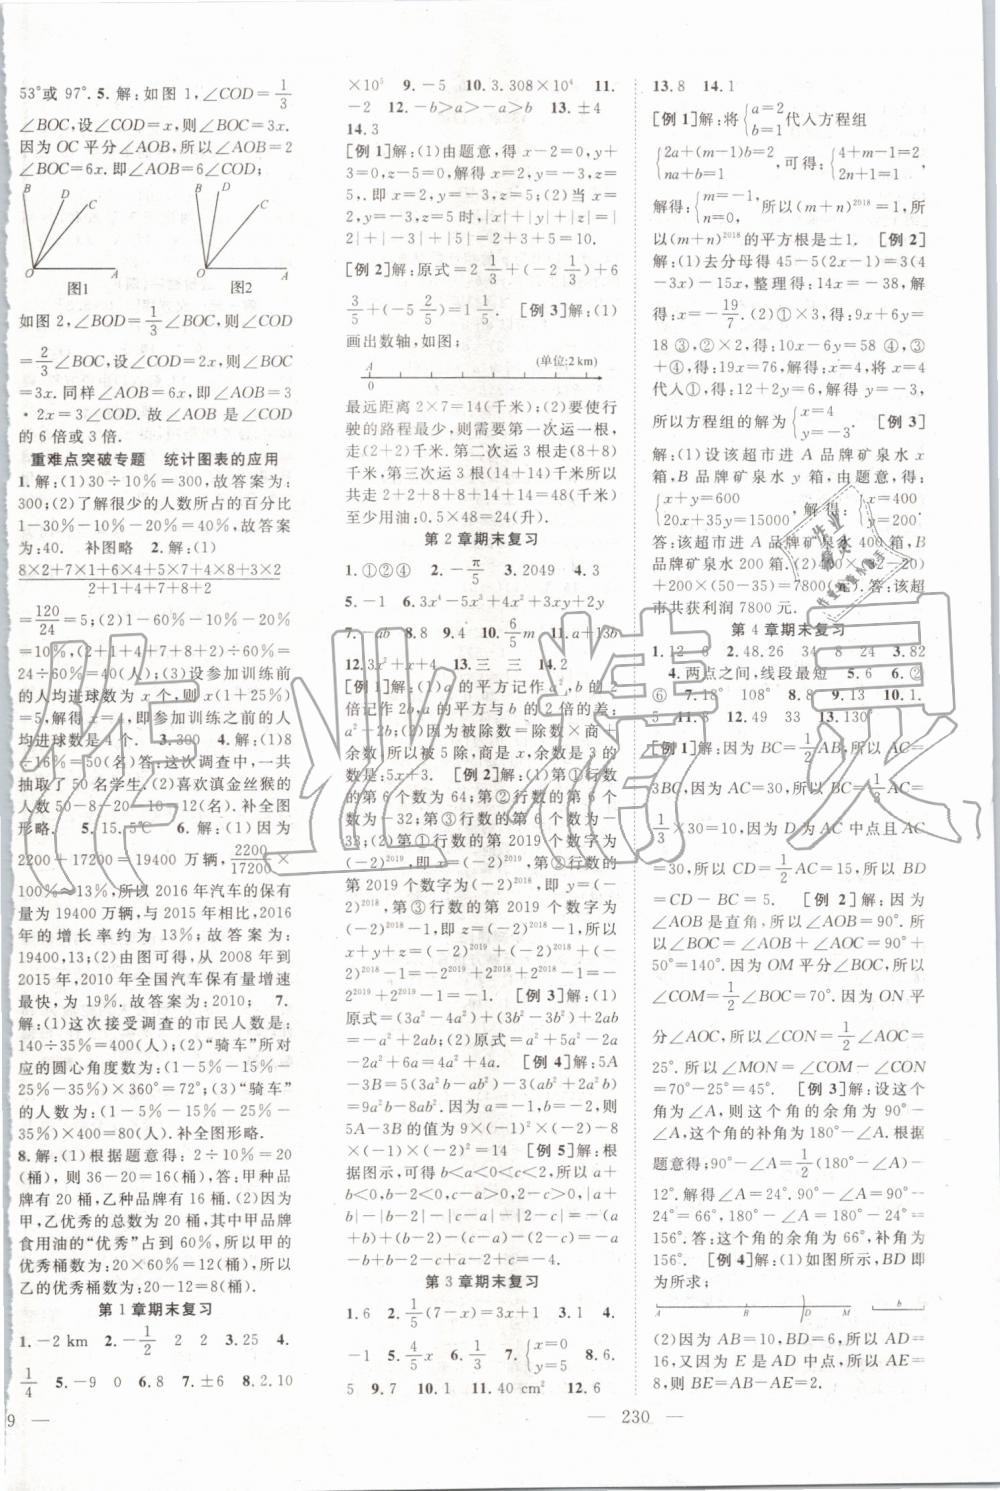 53°或 97°. 5. 解:如图 1,∠COD=1/3
∠BOC,设∠COD=x,则∠BOC=3x.
因为 OC 平分∠AOB,所以∠AOB=2
∠BOC=6x. 即∠AOB=6∠COD;
B D C O A 图1
B D C O A 图2
如图 2,∠BOD=1/3∠BOC,则∠COD
=2/3∠BOC,设∠COD=2x,则∠BOC
=3x. 同样∠AOB=6x,即∠AOB=3
·2x=3∠COD. 故∠AOB 是∠COD
的 6 倍或 3 倍.
重难点突破专题 统计图表的应用
1. 解:(1)30÷10%=300,故答案为:
300;(2)了解很少的人数所占的百分比
1-30%-10%-20%=40%,故答案
为:40. 补图略 2. 解:(1)
8×2+7×1+6×4+5×7+4×8+3×2/2+1+4+7+8+2
=120/24=5;(2)1-60%-10%-20%
=10%,(2+1+4+7+8+2)÷60%=
24÷60%=40(人);(3)设参加训练前
的人均进球数为 x 个,则 x(1+25%)
=5,解得 x=4,即参加训练之前的人
均进球数是 4 个. 3. 300 4. 解:(1)8
÷16%=50(名)答:这次调查中,一共
抽取了 50 名学生. (2)喜欢滇金丝猴的
人数 50-8-20-10=12(名). 补全图
形略. 5. 15.5℃ 6. 解:(1)因为
2200+17200=19400 万辆,2200/17200×
100%≈13%,所以 2016 年汽车的保有
量为 19400 万辆,与 2015 年相比,2016
年的增长率约为 13%;故答案为:
19400,13;(2)由图可得,从 2008 年到
2015 年,2010 年全国汽车保有量增速
最快,为 19%. 故答案为:2010; 7.
解:(1)这次接受调查的市民人数是:
140÷35%=400(人);(2)“骑车”所对
应的圆心角度数是:(1-5%-15%-
25%-35%)×360°=72°;(3)“骑车”
的人数为:(1-5%-15%-25%-
35%)×400=80(人). 补全图形略.
8. 解:(1)根据题意得:2÷10%=20
(桶),则 36-20=16(桶),答:甲种品
牌有 20 桶,乙种品牌有 16 桶. (2)因为
甲,乙优秀的总数为 20 桶,其中甲品牌
食用油的“优秀”占到 60%,所以甲的
优秀桶数为:20×60%=12(桶),所以
乙的优秀桶数为:20-12=8(桶).
第 1 章期末复习
1. -2 km 2. -1/2 2 2 3. 25 4.
1/4 5. -9 0 6. 8 7. ±6 8. 2.10
9 —
×10⁵ 9. -5 10. 3.308×10⁴ 11.
-2 12. -b>a>-a>b 13. ±4
14. 3
[例 1]解:(1)由题意,得 x-2=0,y+
3=0,z-5=0,解得 x=2,y=-3,z=
5,. 即 x=2,y=-3,z=5;(2)当 x=
2,y=-3,z=5 时,|x|+|y|+|z|=
|2|+|-3|+|5|=2+3+5=10.
[例 2]解:原式=2 1/3+(-2 1/3)+6
3/5+(-5 2/5)=1 1/5. [例 3]解:(1)
画出数轴,如图:
A 0 (单位:2 km)
最远距离 2×7=14(千米);(2)要使行
驶的路程最少,则第一次运一根,
走(2+2)千米. 第二次运 3 根(8+8)
千米,第三次运 3 根(14+14)千米. 所以
共走 2+2+8+8+14+14=48(千米)
至少用油:0.5×48=24(升).
第 2 章期末复习
1. ①②④ 2. -π/5 3. 2049 4. 3
5. -1 6. 3x⁴-5x³y+4x²+xy+2y
7. -ab 8. 8 9. 4 10. 6/5 m 11. a+13b
12. 3x²+x+4 13. 三 三 14. 2
[例 1]解:(1)a 的平方记作 a²,b 的 2
倍记作 2b,a 的平方与 b 的 2 倍的差:
a²-2b;(2)因为被除数=除数×商+
余数,所以被 5 除,商是 x,余数是 3 的
数是:5x+3. [例 2]解:(1)第①行数
的第 6 个数为 64;第②行数的第 6 个
数为-32;第③行数的第 6 个数为-
33;(2)第①行数的第 2019 个数字为
(-2)²⁰¹⁹,即 x=(-2)²⁰¹⁹,第②行数的
第 2019 个数字为(-2)²⁰¹⁸,即 y=(-
2)²⁰¹⁸,第③行数的第 2019 个数字为
(-2)²⁰¹⁸-1,即 z=(-2)²⁰¹⁸-1,所以
x+y+z=(-2)²⁰¹⁹+(-2)²⁰¹⁸+(-
2)²⁰¹⁸-1=-2²⁰¹⁹+2²⁰¹⁸+2²⁰¹⁸-1=
-2²⁰¹⁹+2²⁰¹⁹-1=-1. [例 3]解:(1)
原式=(3a²-4a²)+(3b²-3b²)+2ab
=-a²+2ab;(2)原式=a²+5a²-2a-
2a²-6a=4a²+4a. [例 4]解:5A
-3B=5(3a²b-ab²)-3(-ab²+2a²b)
=9a²b-8ab². 因为 a=-1,b=-2,则
5A-3B 的值为 9×(-1)²×(-2)-8
×(-1)×(-2)²=14. [例 5]解:根
据图示,可得 b<a<0<c<2,所以 a+
b<0,b-2<0,c-a>0,2-c>0,则
|a+b|-|b-2|-|c-a|-|2-c|=-
(a+b)+(b-2)-(c-a)-(2-c)=-4.
第 3 章期末复习
1. 6 2. 1/5(7-x)=3x+1 3. 1 4.
-1 5. 4/5 x 6. 1/3 7. {x=0 y=5 8. 6.
5 9. 7 10. 1 11. 40 cm² 12. 6
— 230 —
13. 8 14. 1
[例 1]解:将{a=2 b=1 代入方程组
{2a+(m-1)b=2, na+b=1 可得:{4+m-1=2, 2n+1=1
解得:{m=-1, n=0, 所以(m+n)²⁰¹⁸=1,所
以(m+n)²⁰¹⁸的平方根是±1. [例 2]
解:(1)去分母得 45-5(2x-1)=3(4
-3x)-15x,整理得:14x=-38,解
得:x=-19/7. (2)①×3,得:9x+6y=
18 ③,②×2,得:10x-6y=58 ④,③
+④,得:19x=76,解得:x=4,将 x=4
代入①,得:12+2y=6,解得 y=-3,
所以方程组的解为{x=4 y=-3. [例 3]
解:(1)设该超市进 A 品牌矿泉水 x
箱,B 品牌矿泉水 y 箱,由题意,得:
{x+y=600 20x+35y=15000, 解得:{x=400 y=200.
答:该超市进 A 品牌矿泉水 400 箱,B
品牌矿泉水 200 箱. (2)400×(32-20)
+200×(50-35)=7800(元). 答:该超
市共获利润 7800 元.
第 4 章期末复习
1. 12 6 2. 48.26 34 8 24 3. 82
4. 两点之间,线段最短 5. 6 6. ②
⑥ 7. 18° 108° 8. 8 9. 13 10. 1.
5 11. 8 12. 49 33 13. 130°
[例 1]解:因为 BC=1/2AB,所以 AC=
3BC,因为 AC=30,所以 BC=1/3AC=
1/3×30=10,因为 D 为 AC 中点且 AC
=30,所以 CD=1/2AC=15,所以 BD
=CD-BC=5. [例 2]解:因为
∠AOB 是直角,所以∠AOB=90°. 所
以∠BOC=∠AOB+∠AOC=90°+
50°=140°. 因为 OM 平分∠BOC,所以
∠COM=1/2∠BOC=70°. 因为 ON 平
分∠AOC,所以∠CON=1/2∠AOC=
25°. 所以∠MON=∠COM-∠CON
=70°-25°=45°. [例 3]解:设这个
角为∠A,则这个角的余角为 90°-
∠A,这个角的补角为 180°-∠A. 根据
题意得:90°-∠A=1/2(180°-∠A)-
12°. 解得∠A=24°. 90°-∠A=90°-
24°=66°,180°-∠A=180°-24°=
156°. 答:这个角的余角为 66°,补角为
156°. [例 4]解:(1)如图所示,BD 即
为所求;
A B D M b
(2)因为 AB=10,BD=6,所以 AD=
16,又因为 E 是 AD 中点,所以 AE=
8,则 BE=AB-AE=10-8=2.
作业精灵